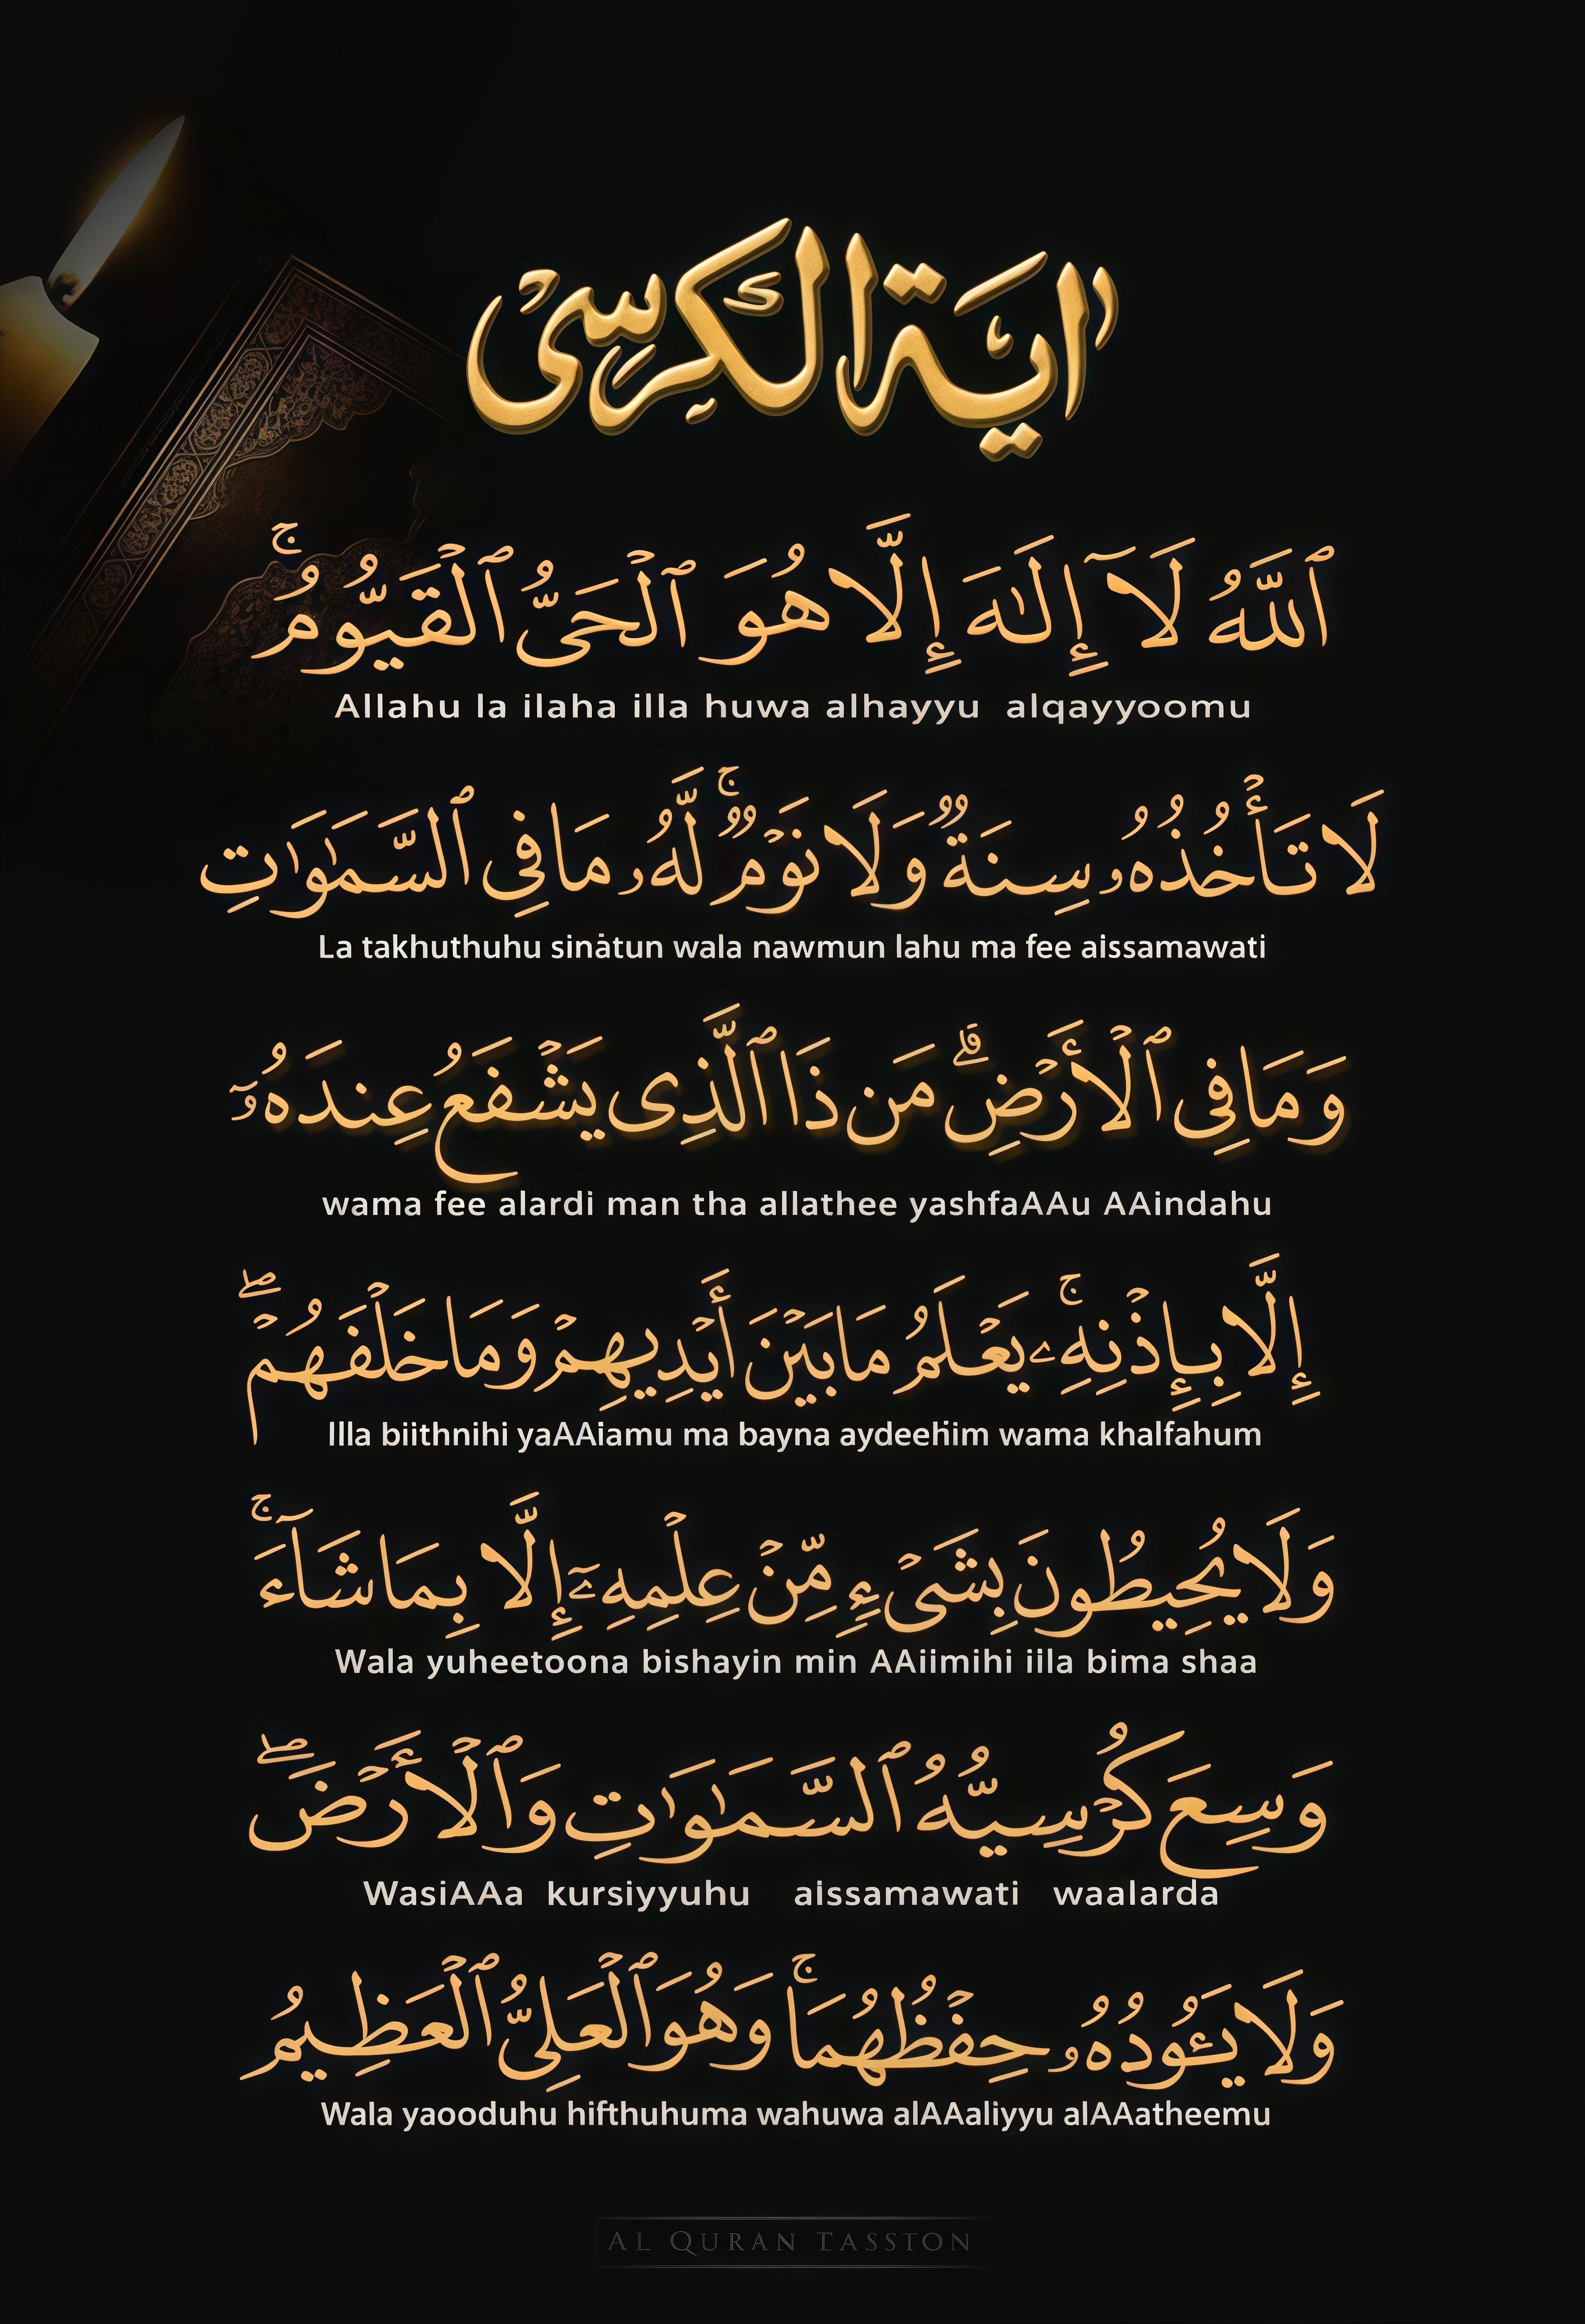 اٰيَة الكرسى
ٱللَّهُ لَآ إِلَـٰهَ إِلَّا هُوَ ٱلْحَىُّ ٱلْقَيُّومُ ۚ
Allahu la ilaha illa huwa alhayyu alqayyoomu
لَا تَأْخُذُهُۥ سِنَةٌ وَلَا نَوْمٌ ۚ لَّهُۥ مَا فِى ٱلسَّمَـٰوَٰتِ
La takhuthuhu sinȧtun wala nawmun lahu ma fee aissamawati
وَمَا فِى ٱلْأَرْضِ ۗ مَن ذَا ٱلَّذِى يَشْفَعُ عِندَهُۥٓ
wama fee alardi man tha allathee yashfaAAu AAindahu
إِلَّا بِإِذْنِهِۦ ۚ يَعْلَمُ مَا بَيْنَ أَيْدِيهِمْ وَمَا خَلْفَهُمْ ۖ
Illa biithnihi yaAAiamu ma bayna aydeeḣim wama khalfahum
وَلَا يُحِيطُونَ بِشَىْءٍ مِّنْ عِلْمِهِۦٓ إِلَّا بِمَا شَآءَ ۚ
Wala yuheetoona bishayin min AAiimihi iila bima shaa
وَسِعَ كُرْسِيُّهُ ٱلسَّمَـٰوَٰتِ وَٱلْأَرْضَ ۖ
WasiAAa kursiyyuhu aissamawati waalarda
وَلَا يَـُٔودُهُۥ حِفْظُهُمَا ۚ وَهُوَ ٱلْعَلِىُّ ٱلْعَظِيمُ
Wala yaooduhu hifthuhuma wahuwa alAAaliyyu alAAatheemu
AL QURAN TASSTON